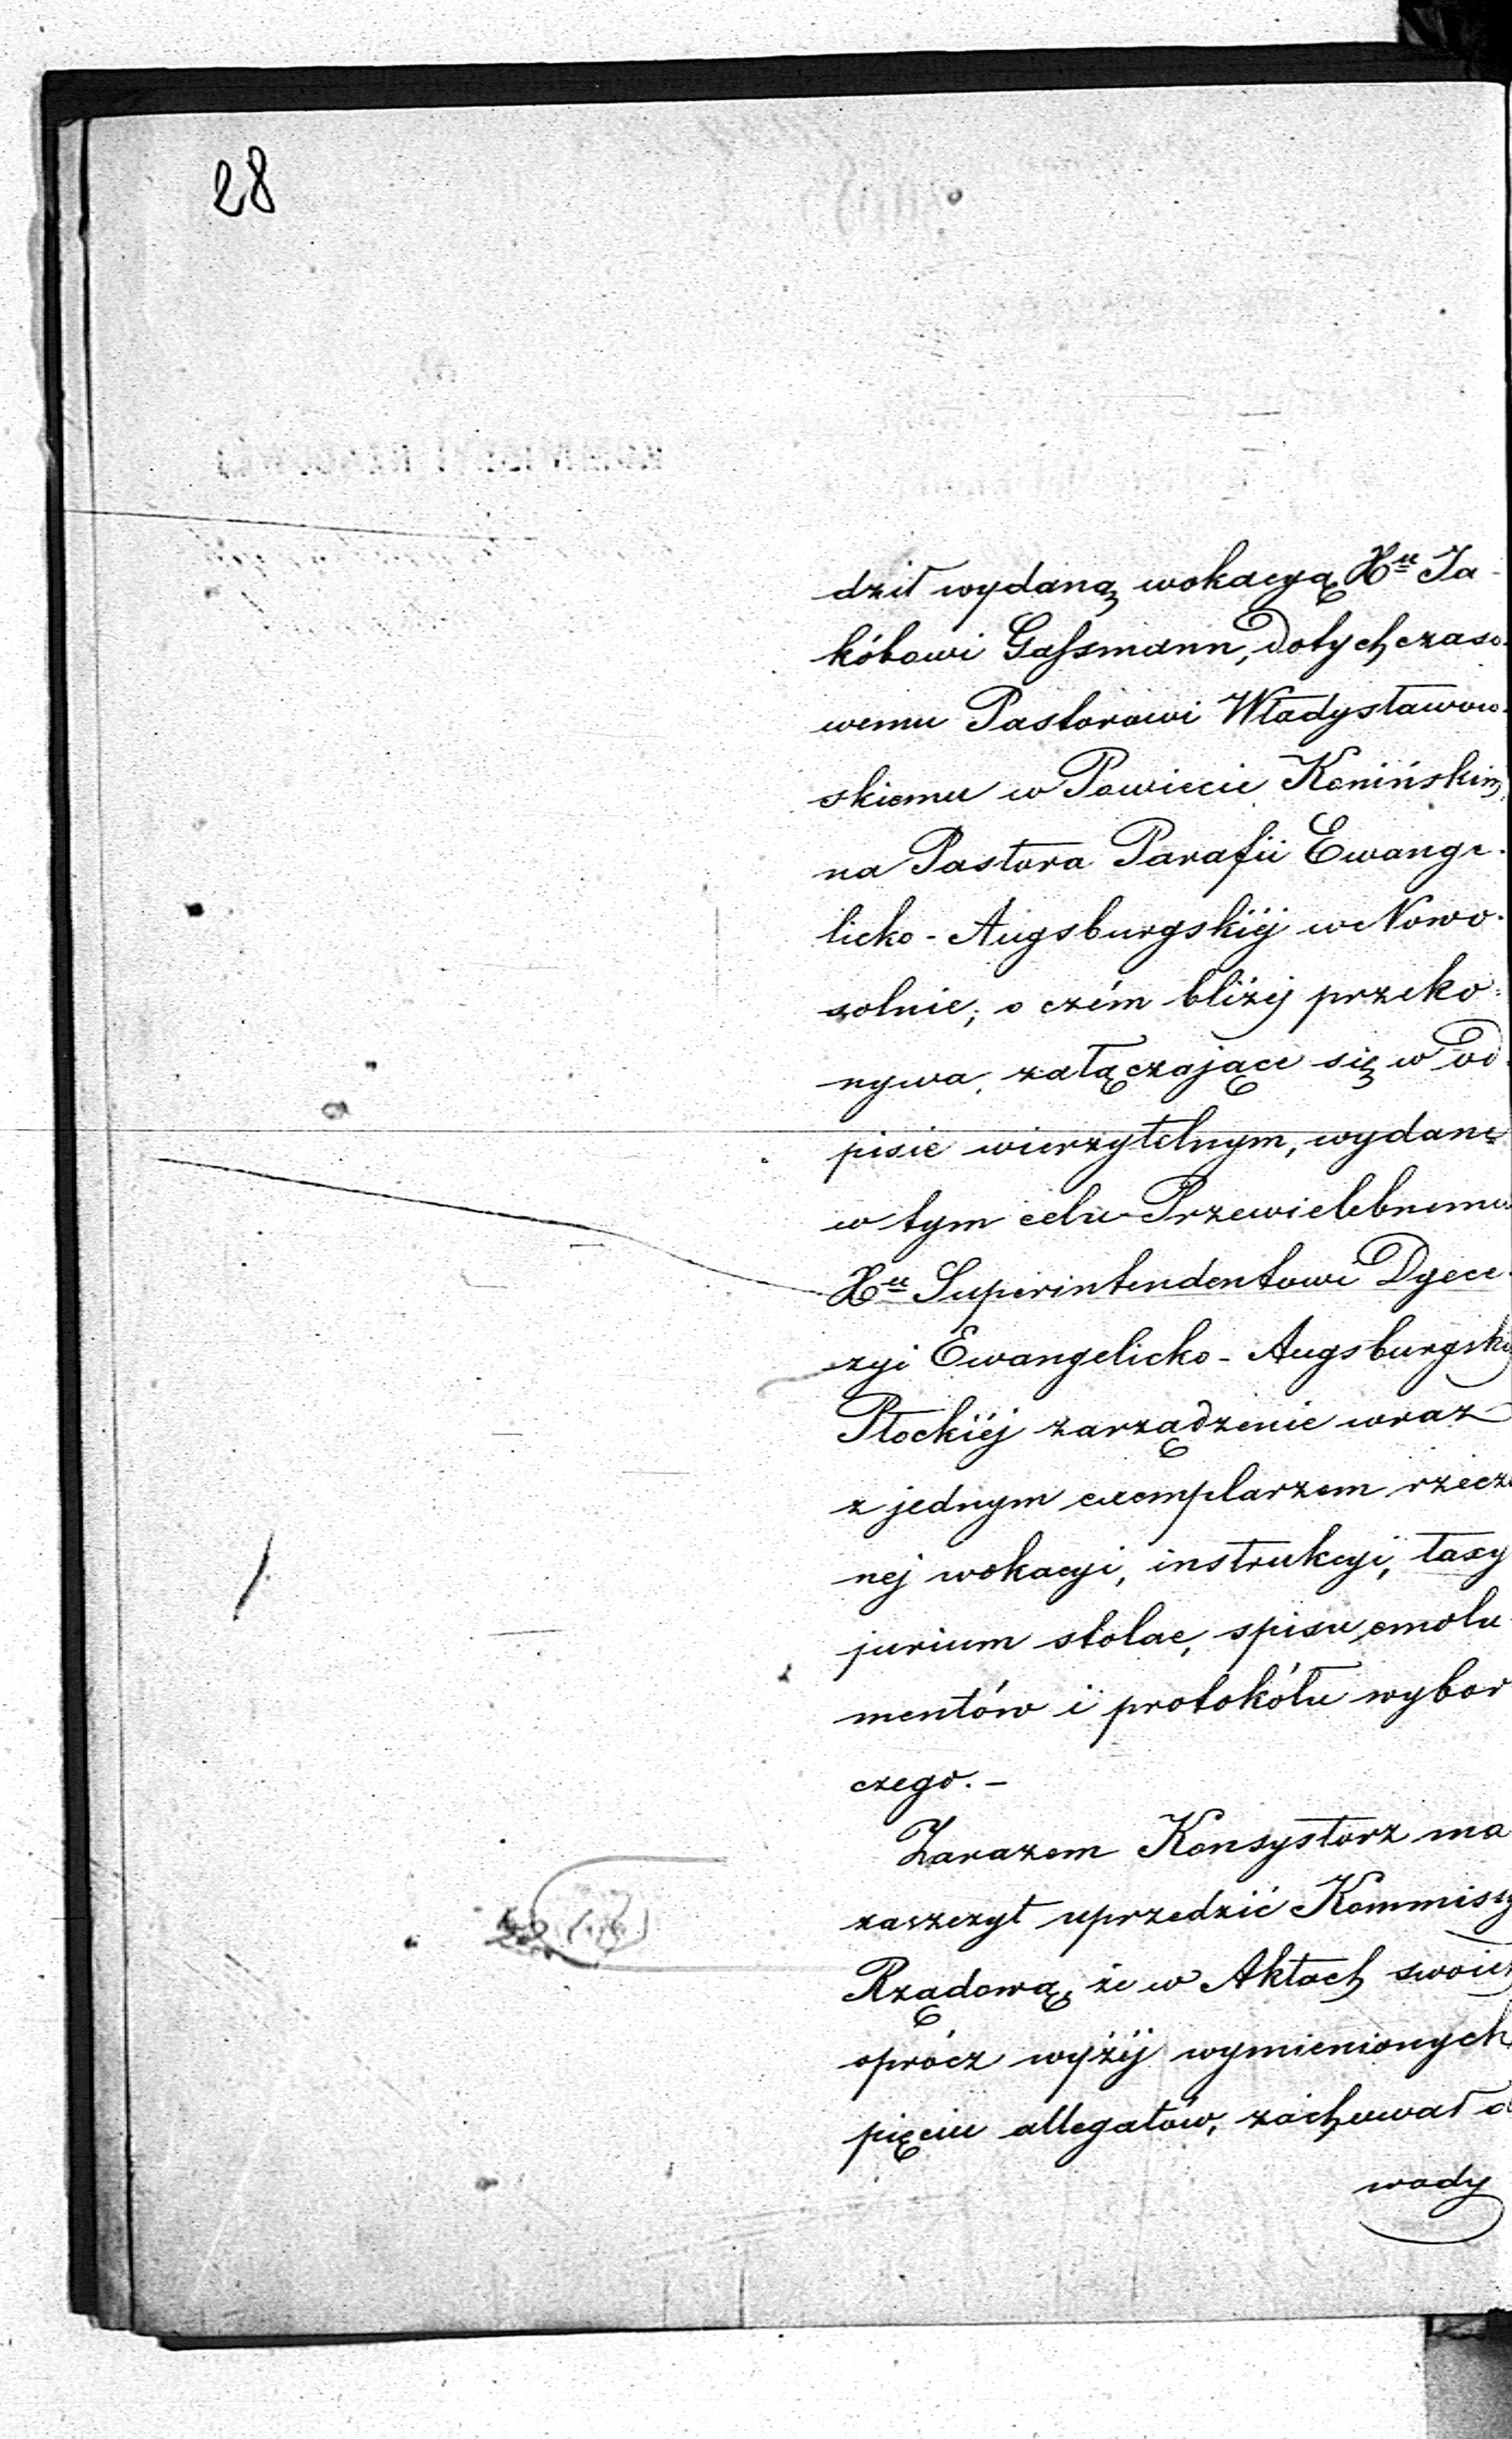 28
dził wydaną wokacyą Xu Ja-
kóbowi Gassmann, dotychczaso-
wemu Pastorowi Władysławow-
skiemu w Powiecie Konińskim,
na Pastora Parafii Ewange-
licko-Augsburgskiéj w Nowo-
solnie; o czém bliżéj przeko-
nywa, załączające się w od-
pisie wierzytelnym, wydane
w tym celu Przewielebnemu
Xu Superintendentowi Dyece-
zyi Ewangelicko-Augsburgskiéj
Płockiéj zarządzenie wraz
z jednym exemplarzem rzeczo
nej wokacyi, instrukcyi, taxy
jurium stolae, spisu emolu
mentów i protokółu wybor
czego. -
Zarazem Konsystorz ma
zaszczyt uprzedzić Kommissy
Rządową, że w Aktach swoich
oprócz wyżéj wymienionych
pięciu allegatów, zachował d
wody